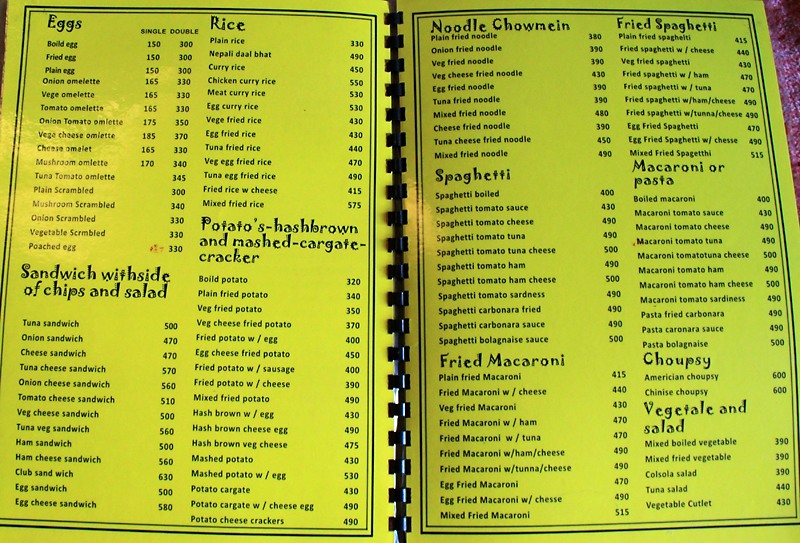 Eggs
SINGLE DOUBLE
Boild egg 150 300
Fried egg 150 300
Plain egg 150 300
Onion omelette 165 330
Vege omelette 165 330
Tomato omelette 165 330
Onion Tomato omlette 175 350
Vege cheese omlette 185 370
Cheese omelet 165 330
Mushroom omlette 170 340
Tuna Tomato omlette 345
Plain Scrambled 300
Mushroom Scrambled 340
Onion Scrambled 330
Vegetable Scrmbled 330
Poached egg 330
Sandwich withside
of chips and salad
Tuna sandwich 500
Onion sandwich 470
Cheese sandwich 470
Tuna cheese sandwich 570
Onion cheese sandwich 560
Tomato cheese sandwich 510
Veg cheese sandwich 500
Tuna veg sandwich 560
Ham sandwich 500
Ham cheese sandwich 560
Club sand wich 630
Egg sandwich 500
Egg cheese sandwich 580
Rice
Plain rice 330
Nepali daal bhat 490
Curry rice 450
Chicken curry rice 550
Meat curry rice 530
Egg curry rice 530
Vege fried rice 430
Egg fried rice 430
Tuna fried rice 440
Veg egg fried rice 470
Tuna egg fried rice 490
Fried rice w cheese 415
Mixed fried rice 575
Potato's-hashbrown
and mashed-cargate-
cracker
Boild potato 320
Plain fried potato 340
Veg fried potato 350
Veg cheese fried potato 370
Fried potato w / egg 400
Egg cheese fried potato 450
Fried potato w / sausage 400
Fried potato w / cheese 390
Mixed fried potato 490
Hash brown w / egg 430
Hash brown cheese egg 490
Hash brown veg cheese 475
Mashed potato 430
Mashed potato w / egg 530
Potato cargate 430
Potato cargate w / cheese egg 490
Potato cheese crackers 490
Noodle Chowmein
Plain fried noodle 380
Onion fried noodle 390
Veg fried noodle 390
Veg cheese fried noodle 430
Egg fried noodle 390
Tuna fried noodle 390
Mixed fried noodle 480
Cheese fried noodle 390
Tuna cheese fried noodle 450
Mixed fried noodle 490
Spaghetti
Spaghetti boiled 400
Spaghetti tomato sauce 430
Spaghetti tomato cheese 490
Spaghetti tomato tuna 490
Spaghetti tomato tuna cheese 500
Spaghetti tomato ham 490
Spaghetti tomato ham cheese 500
Spaghetti tomato sardness 490
Spaghetti carbonara fried 490
Spaghetti carbonara sauce 490
Spaghetti bolagnaise sauce 500
Fried Macaroni
Plain fried Macaroni 415
Fried Macaroni w / cheese 440
Veg fried Macaroni 430
Fried Macaroni w / ham 470
Fried Macaroni w / tuna 470
Fried Macaroni w/ham/cheese 490
Fried Macaroni w/tunna/cheese 490
Egg Fried Macaroni 470
Egg Fried Macaroni w/ chesse 490
Mixed Fried Macaroni 515
Fried Spaghetti
Plain fried spaghetti 415
Fried spaghetti w / cheese 440
Veg fried spaghetti 430
Fried spaghetti w / ham 470
Fried spaghetti w / tuna 470
Fried spaghetti w/ham/cheese 490
Fried spaghetti w/tunna/cheese 490
Egg Fried Spaghetti 470
Egg Fried Spaghetti w/ chesse 490
Mixed Fried Spagetthi 515
Macaroni or
pasta
Boiled macaroni 400
Macaroni tomato sauce 430
Macaroni tomato cheese 490
Macaroni tomato tuna 490
Macaroni tomatotuna cheese 500
Macaroni tomato ham 490
Macaroni tomato ham cheese 500
Macaroni tomato sardiness 490
Pasta fried carbonara 490
Pasta caronara sauce 490
Pasta bolagnaise 500
Choupsy
Americian choupsy 600
Chinise choupsy 600
Vegetale and
salad
Mixed boiled vegetable 390
Mixed fried vegetable 390
Colsola salad 390
Tuna salad 440
Vegetable Cutlet 430